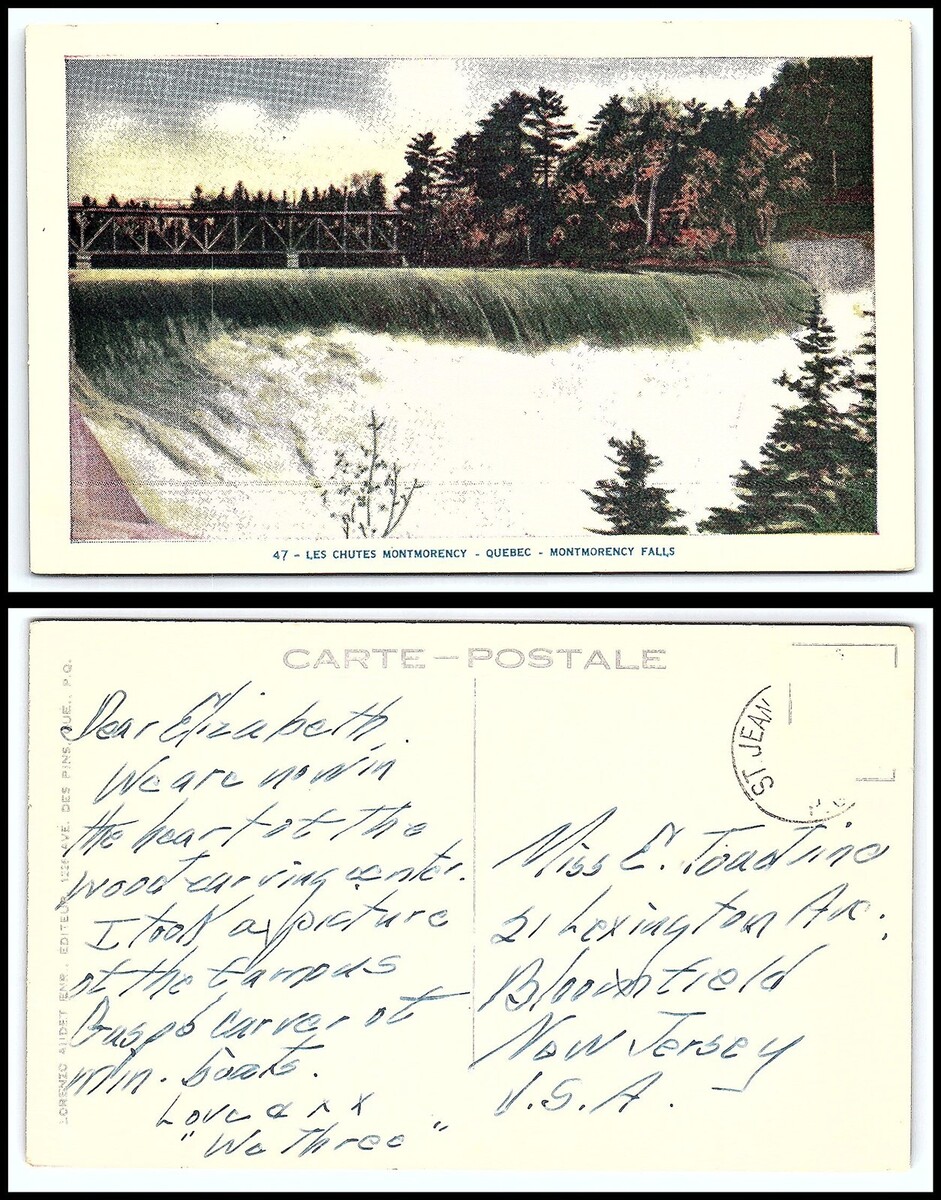 47 - LES CHUTES MONTMORENCY - QUEBEC - MONTMORENCY FALLS
CARTE-POSTALE
LORENZO AUDET ENR., EDITEUR, AVE. DES PINS, P.Q.
ST. JEAN
Dear Elizabeth,
We are now in
the heart of the
wood carving center.
I took a picture
of the famous
Gaspé carver of
min. boats.
Love & x x
"We Three"
Miss E.
21 Lexington Ave.
Bloomfield
New Jersey
U.S.A.